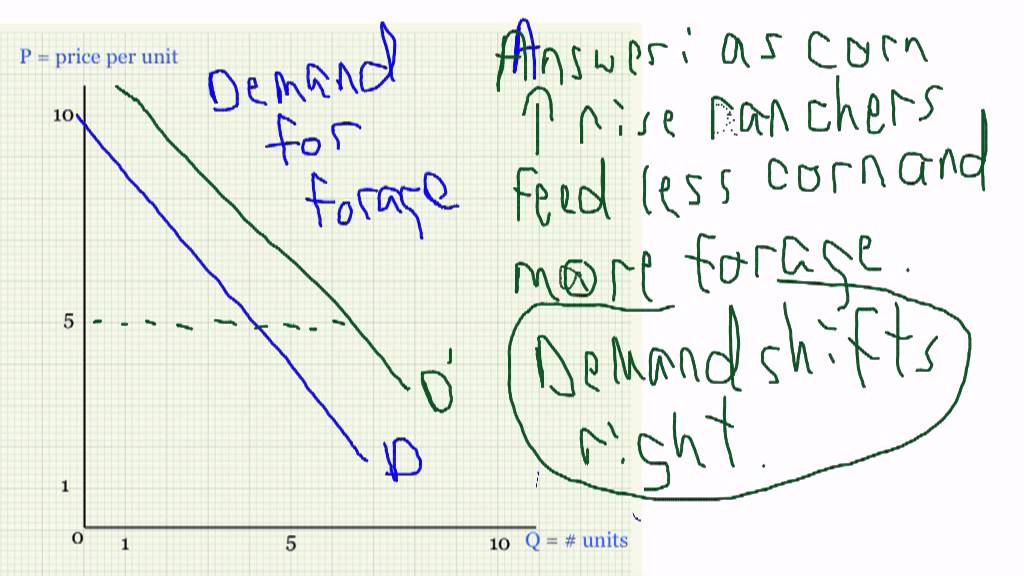 P = price per unit
Demand
for
forage
10
5
1
0 1 5 10
Q = # units
D'
D
Answer: as corn
↑ rise ranchers
feed less corn and
more forage.
Demand shifts
right.